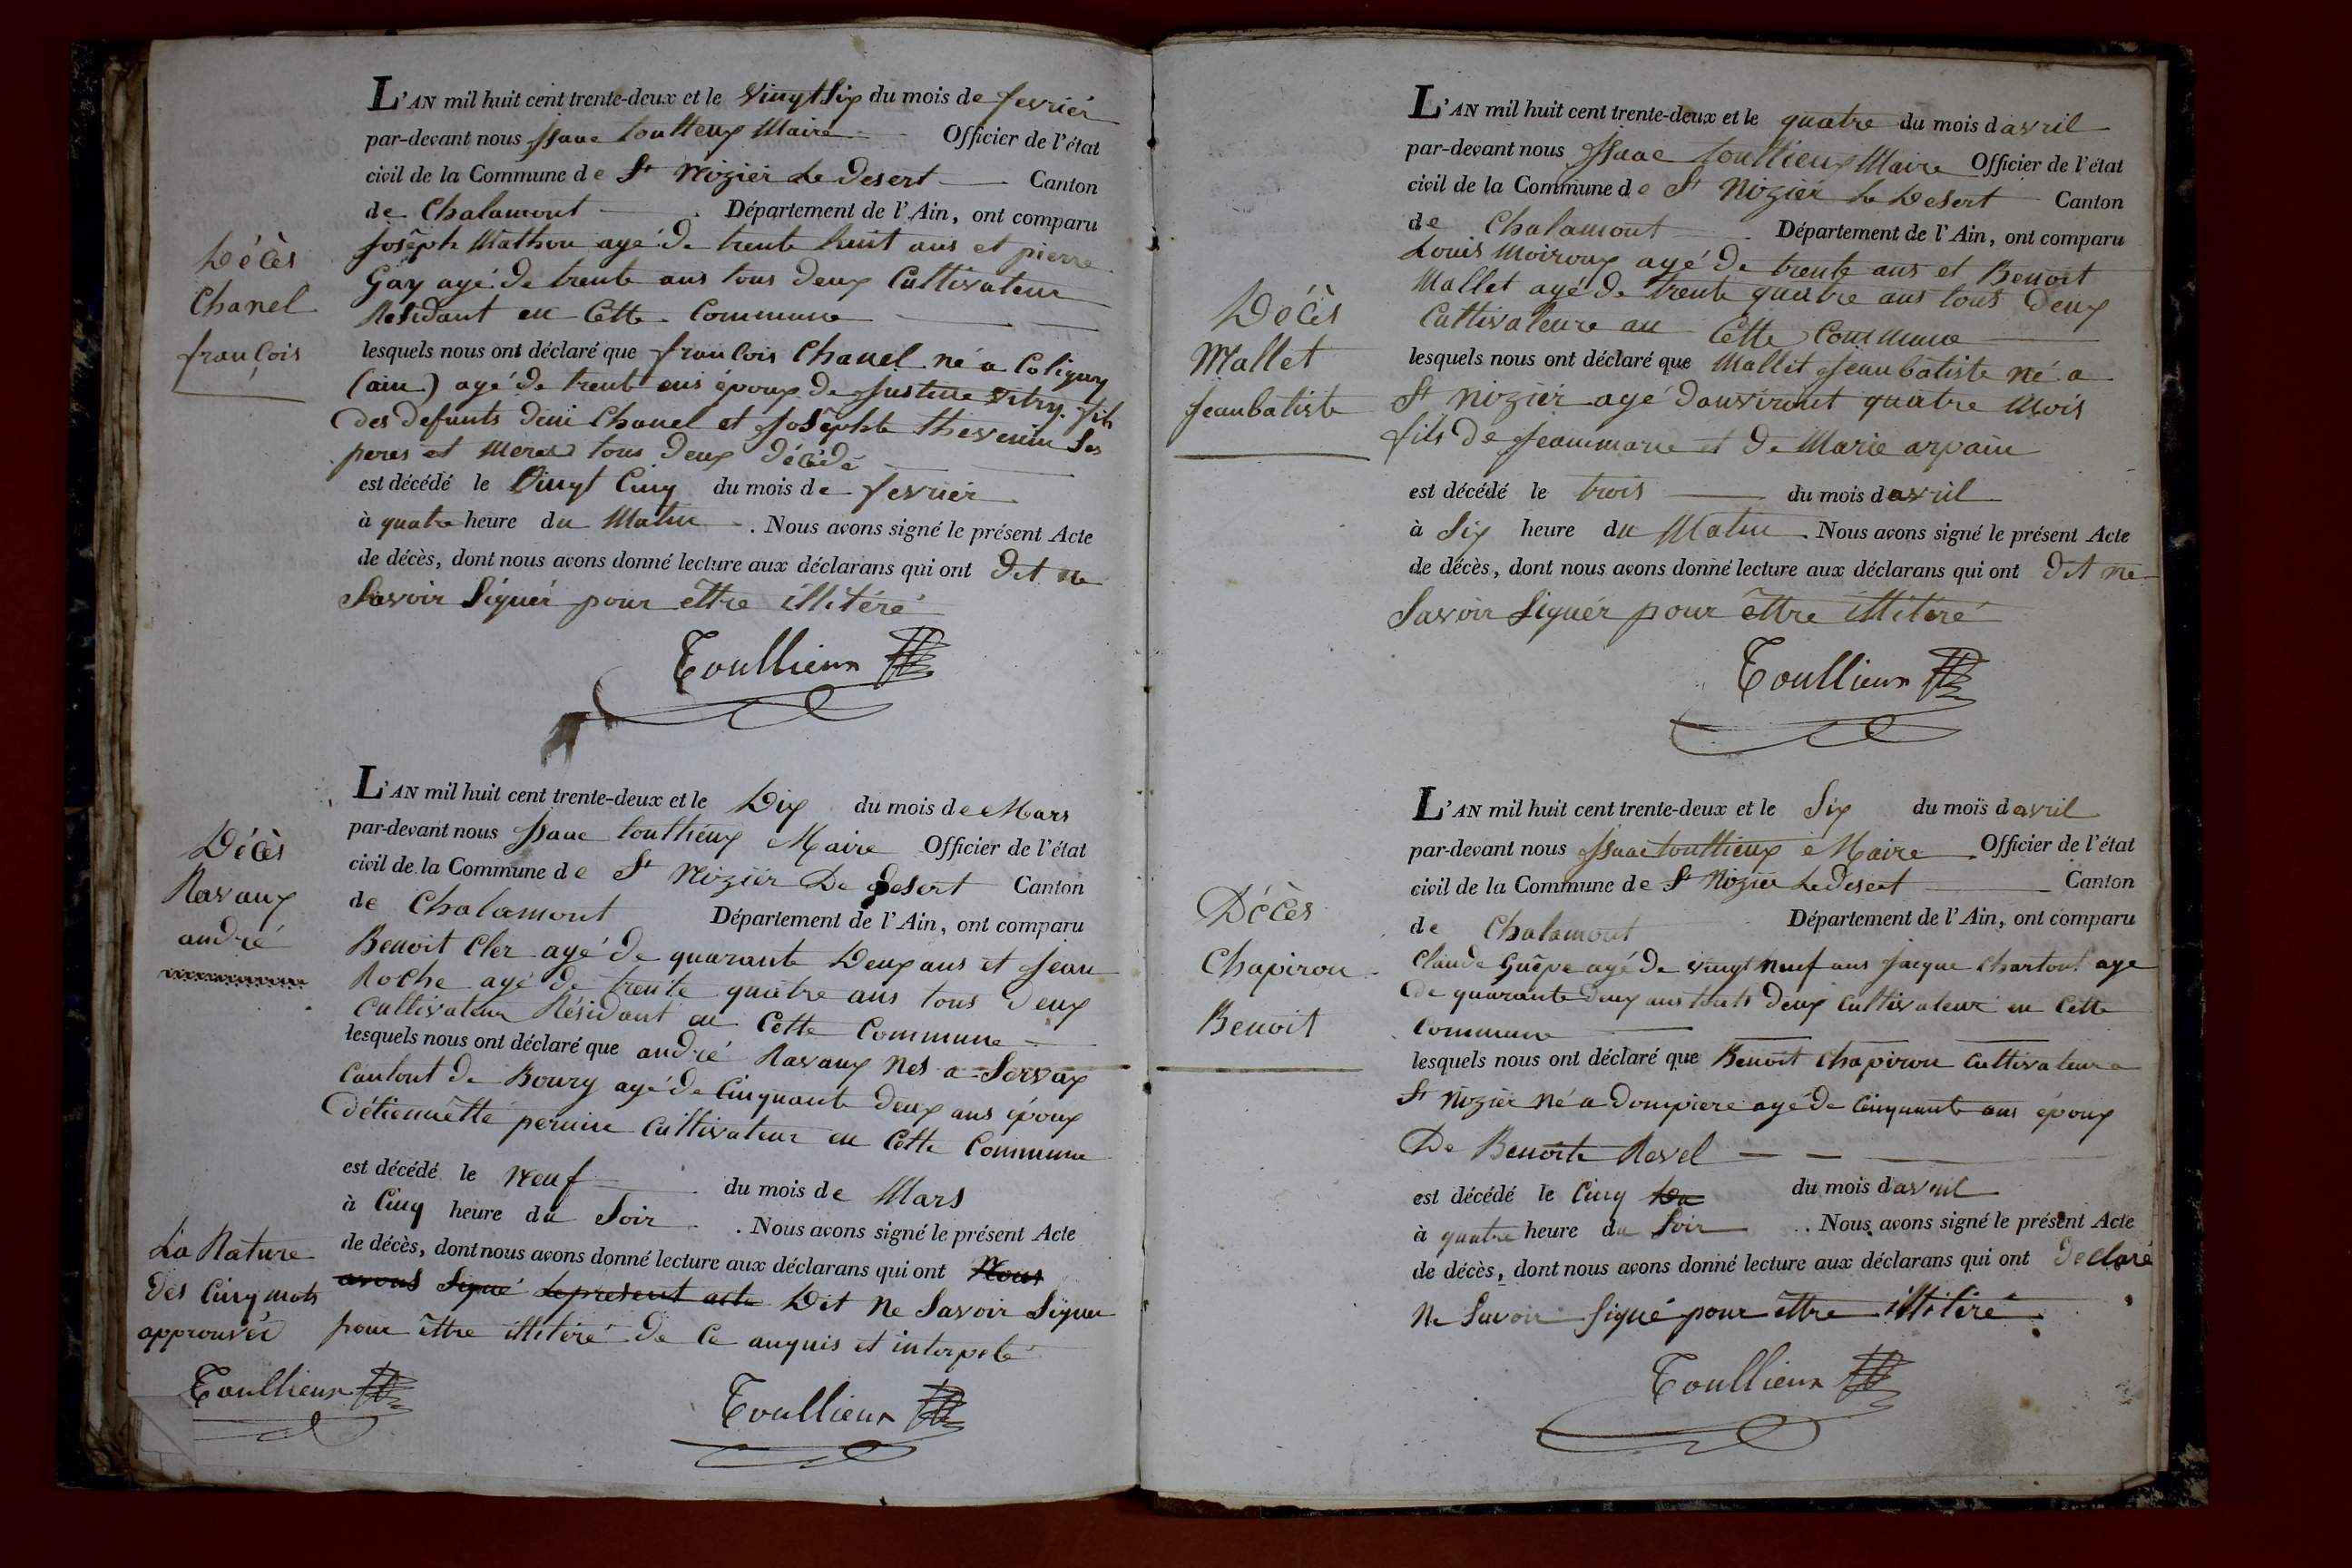 L'AN mil huit cent trente-deux et le vingt Six du mois de fevriér
par-devant nous jsaac toullieux Maire Officier de l'état
civil de la Commune de St Nizier Le Desert Canton
de Chalamont Département de l'Ain, ont comparu
Décès
Chanel
francois
joseph Mathon agé de trente huit ans et pierre
Gay agé de trente ans tous deux Cultivateur
Residant en Cette Commune
lesquels nous ont déclaré que francois Chanel né a Coligny
(ain) agé de trente ans époux de justine Vitry fils
des defunts deni Chanel et joséphte thevenin Ses
peres et meres tous deux décédé
est décédé le Vingt Cinq du mois de fevriér
à quatre heure du Matin . Nous avons signé le présent Acte
de décès, dont nous avons donné lecture aux déclarans qui ont dit ne
Savoir Signér pour êttre illitéré
Toullieux
L'AN mil huit cent trente-deux et le Dix du mois de Mars
par-devant nous jsaac toullieux Maire Officier de l'état
civil de la Commune de St Nizier De Desert Canton
de Chalamont Département de l'Ain, ont comparu
Décès
Ravaux
andré
Benoit Cler agé de quarante Deux ans et jean
Roche agé de trente quatre ans tous deux
Cultivateur Résidant en Cette Commune
lesquels nous ont déclaré que andré Ravaux Nes a Servax
Cantont de Bourg agé de Cinquante deux ans époux
détiennette pernin Cultivateur en Cette Commune
est décédé le Neuf du mois de Mars
à Cinq heure du Soir . Nous avons signé le présent Acte
de décès, dont nous avons donné lecture aux déclarans qui ont Nous
avons Signé Le present acte Dit Ne Savoir Signer
pour êttre illitéré de Ce anquis et interpelé
La Rature
des Cinq mots
approuvée
Toullieux
Toullieux
L'AN mil huit cent trente-deux et le quatre du mois davril
par-devant nous jsaac toullieux Maire Officier de l'état
civil de la Commune de St Nizier Le Desert Canton
de Chalamont Département de l'Ain, ont comparu
Décès
Mallet
jeanbatiste
Louis Moiroux agé de trente ans et Benoit
Mallet agé de trente quatre ans tous deux
Cultivateure an Cette Commune
lesquels nous ont déclaré que Mallet jeanbatiste né a
St Nizier agé danviront quatre Mois
fils de jeanmarie et de Marie arpain
est décédé le trois du mois davril
à Six heure du Matin . Nous avons signé le présent Acte
de décès, dont nous avons donné lecture aux déclarans qui ont dit ne
Savoir Signér pour êttre illitéré
Toullieux
L'AN mil huit cent trente-deux et le Six du mois davril
par-devant nous jsaac toullieux Maire Officier de l'état
civil de la Commune de St Nizier Le Desert Canton
de Chalamont Département de l'Ain, ont comparu
Décès
Chapiron
Benoit
Claude Guêpe agé de vingt Neuf ans jacque Chartout age
de quarante deux ans touts deux Cultivateur en Cette
Commune
lesquels nous ont déclaré que Benoit Chapiron Cultivateur a
St Nizier Né a dompiere agé de Cinquante ans époux
De Benoite Revel
est décédé le Cinq Du du mois davril
à quatre heure du Soir . Nous avons signé le présent Acte
de décès, dont nous avons donné lecture aux déclarans qui ont declaré
Ne Savoir Signé pour êttre illitéré
Toullieux